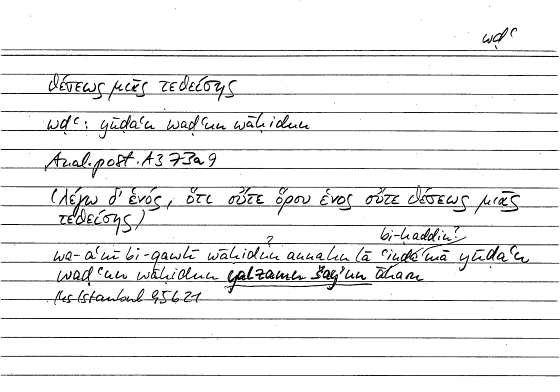 wḍʿ
θέσεως μιᾶς τεθείσης
wḍʿ: yūḍaʿu waḍʿun wāḥidun
Anal. post. A3 73a9
(λέγω δ' ἑνός, ὅτι οὔτε ὅρου ἑνὸς οὔτε θέσεως μιᾶς
τεθείσης)
? bi-ḥaddin?
wa-aʿnī bi-qawlī wāḥidun annahu lā ʿinda mā yūḍaʿu
waḍʿun wāḥidun yalzamu šayʾun āḫaru
Ms Istanbul